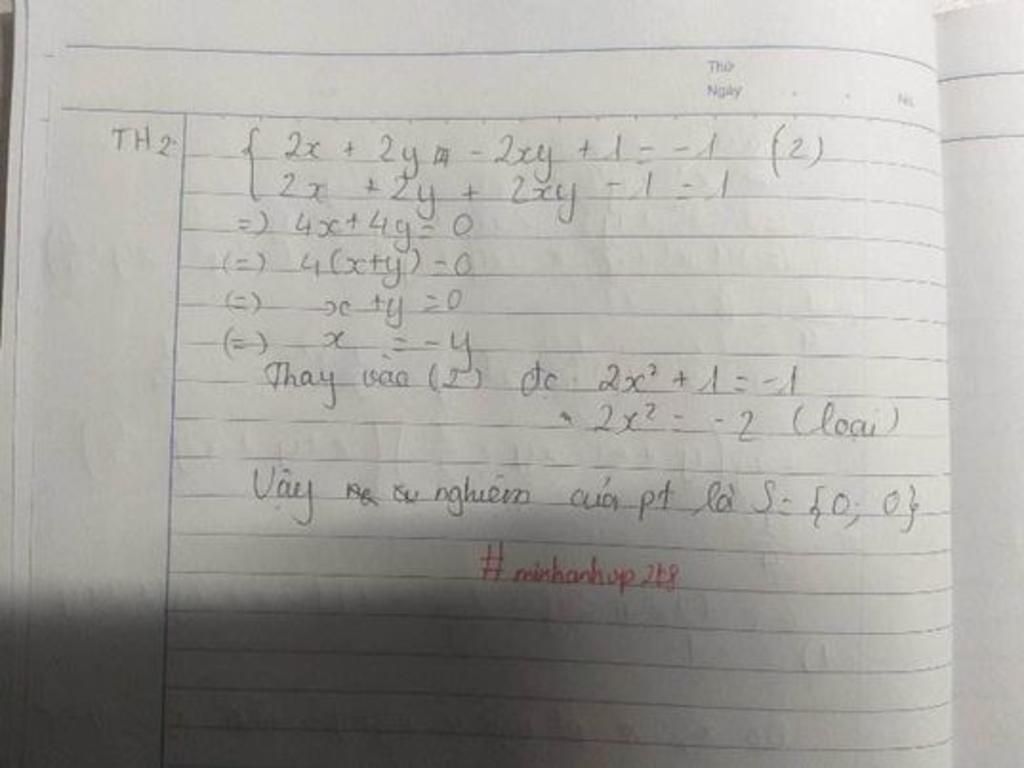 Thứ
Ngày No.
TH2. { 2x + 2y - 2xy + 1 = -1 (2)
2x + 2y + 2xy - 1 = 1
=) 4x + 4y = 0
(=) 4(x+y) = 0
(=) x + y = 0
(=) x = -y
Thay vào (2) đc 2x² + 1 = -1
2x² = -2 (loại)
Vậy nghiệm của pt là S = {0; 0}
# minhanhvp